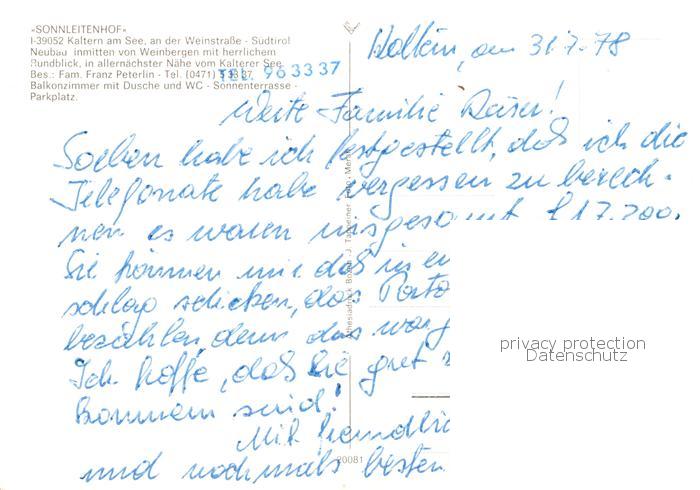 »SONNLEITENHOF«
I-39052 Kaltern am See, an der Weinstraße - Südtirol
Neubau inmitten von Weinbergen mit herrlichem
Rundblick, in allernächster Nähe vom Kalterer See
Bes.: Fam. Franz Peterlin - Tel. (0471)
TEL. 963337
Balkonzimmer mit Dusche und WC - Sonnenterrasse -
Parkplatz.
Kaltern, am 31.7.78
Werte Familie
Soeben habe ich festgestellt, daß ich die
Telefonate habe vergessen zu berech-
nen es waren insgesamt £ 17.200.
Sie können mir das in
schlag schicken, das Porto
bezahlen, denn das war
Ich hoffe, daß Sie gut
kommen sind!
Mit freundlic
und nochmals besten
20081
privacy protection
Datenschutz